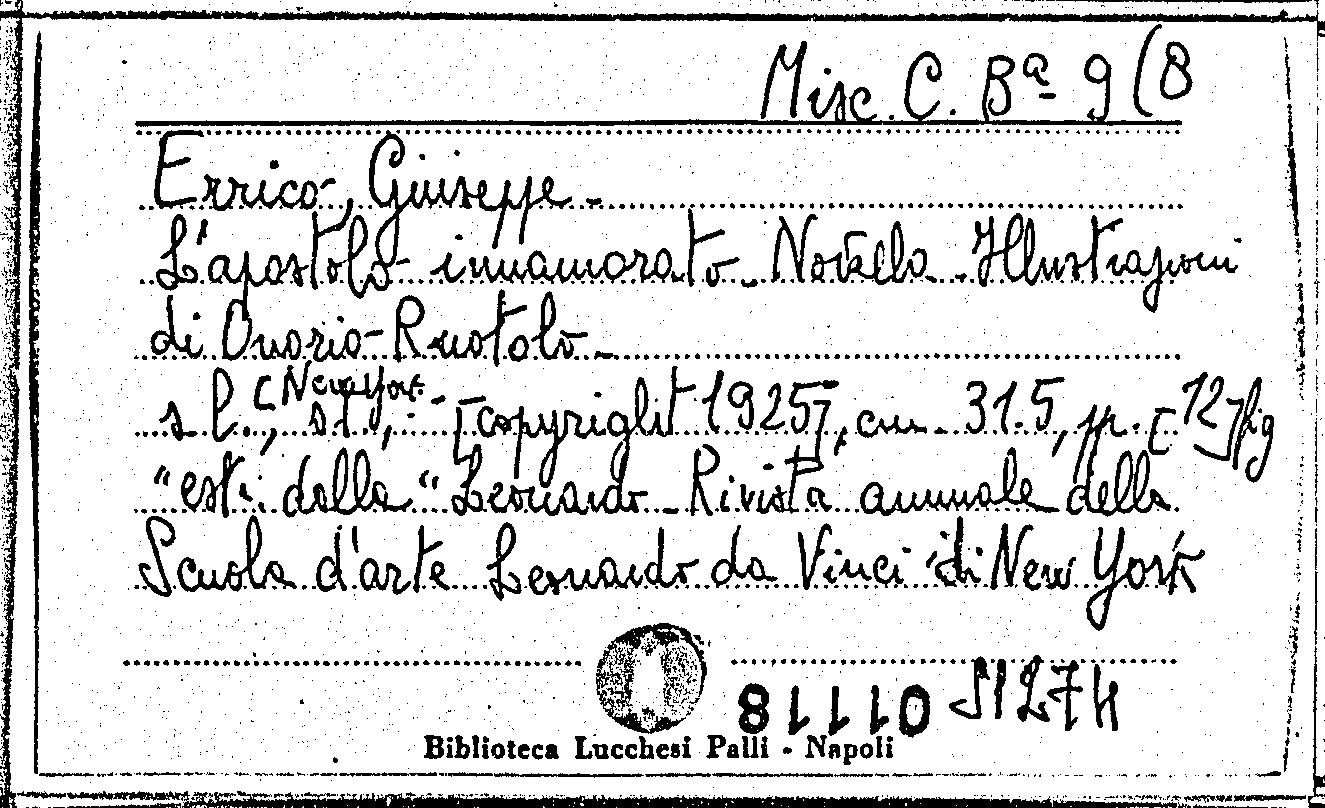 Misc. C. Bª 9 (8
Errico, Giuseppe -
L'apostolo innamorato. Novella. Illustrazioni
di Onorio Ruotolo -
s l. [New York.
, s t, - [copyright 1925], cm. 31.5, pp. [12] fig
"estr. dalla "Leonardo - Rivista annuale della
Scuola d'arte Leonardo da Vinci di New York
Biblioteca Lucchesi Palli - Napoli